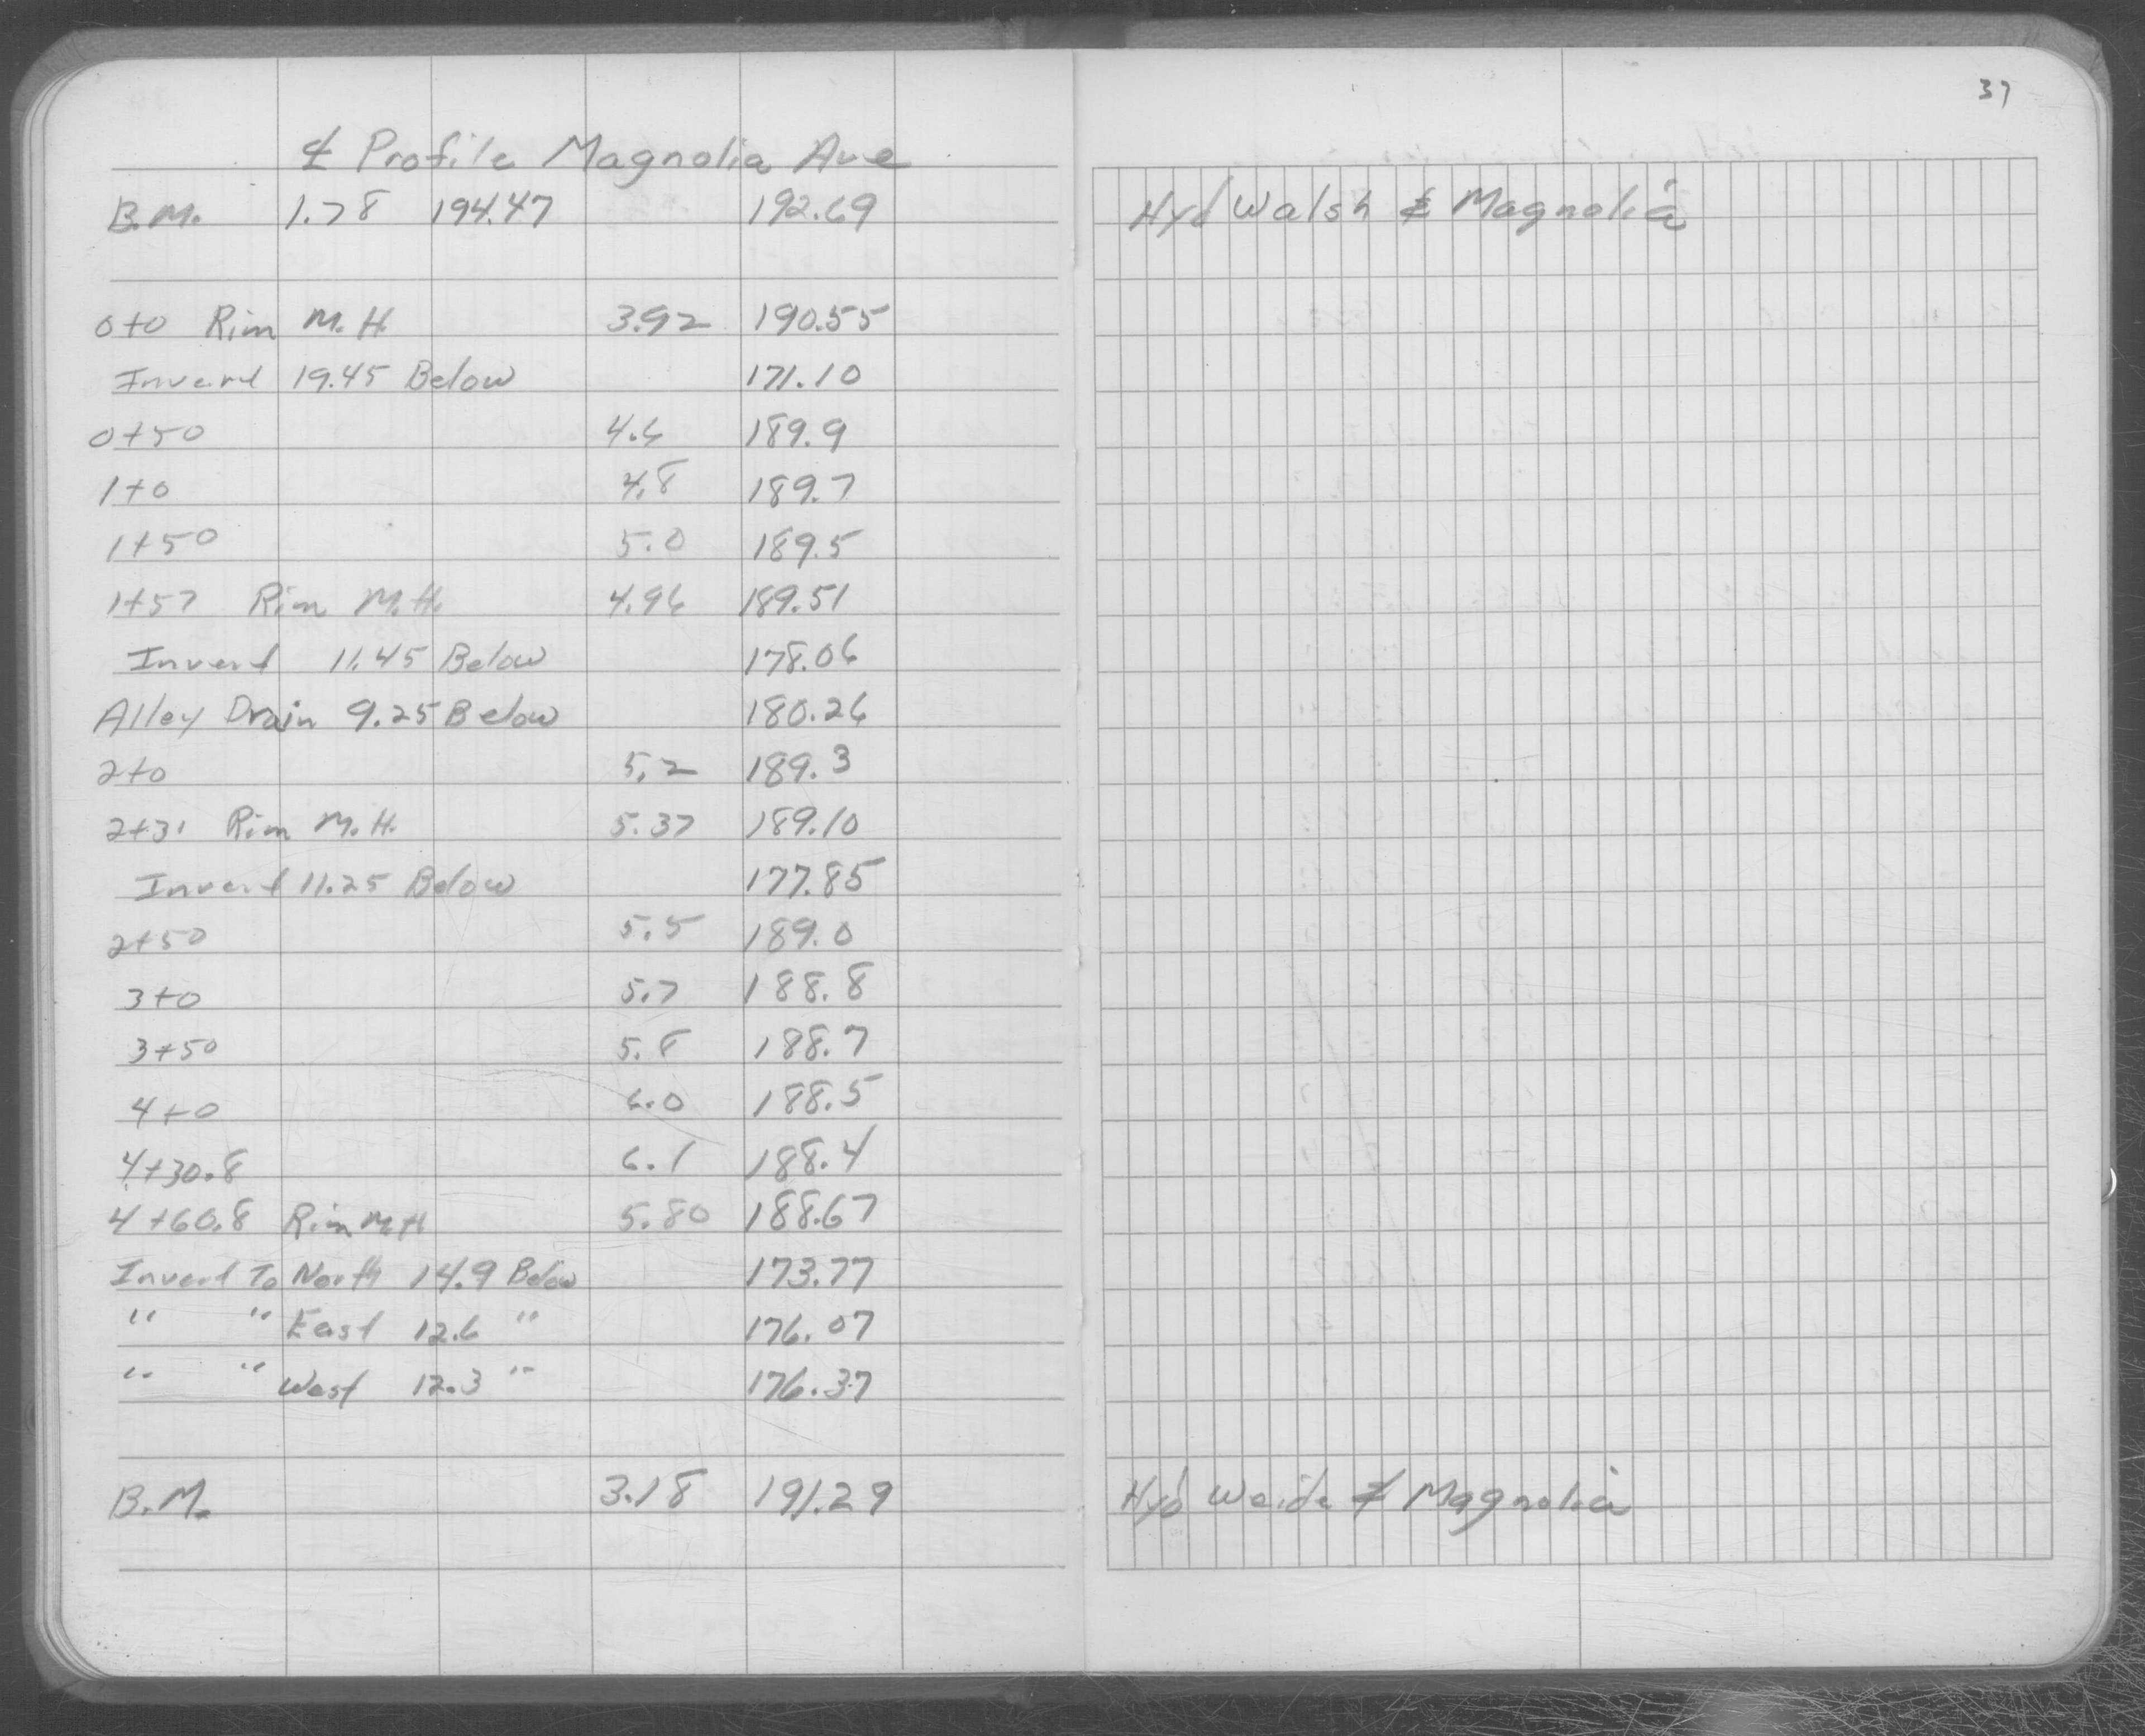 37
℄ Profile Magnolia Ave
B.M. 1.78 194.47 192.69 Hyd Walsh & Magnolia
0+0 Rim M.H. 3.92 190.55
Invert 19.45 Below 171.10
0+50 4.6 189.9
1+0 4.8 189.7
1+50 5.0 189.5
1+57 Rim M.H. 4.96 189.51
Invert 11.45 Below 178.06
Alley Drain 9.25 Below 180.26
2+0 5.2 189.3
2+31 Rim M.H. 5.37 189.10
Invert 11.25 Below 177.85
2+50 5.5 189.0
3+0 5.7 188.8
3+50 5.8 188.7
4+0 6.0 188.5
4+30.8 6.1 188.4
4+60.8 Rim M.H 5.80 188.67
Invert To North 14.9 Below 173.77
" " East 12.6 " 176.07
" " West 12.3 " 176.37
B.M. 3.18 191.29 Hyd Weide & Magnolia